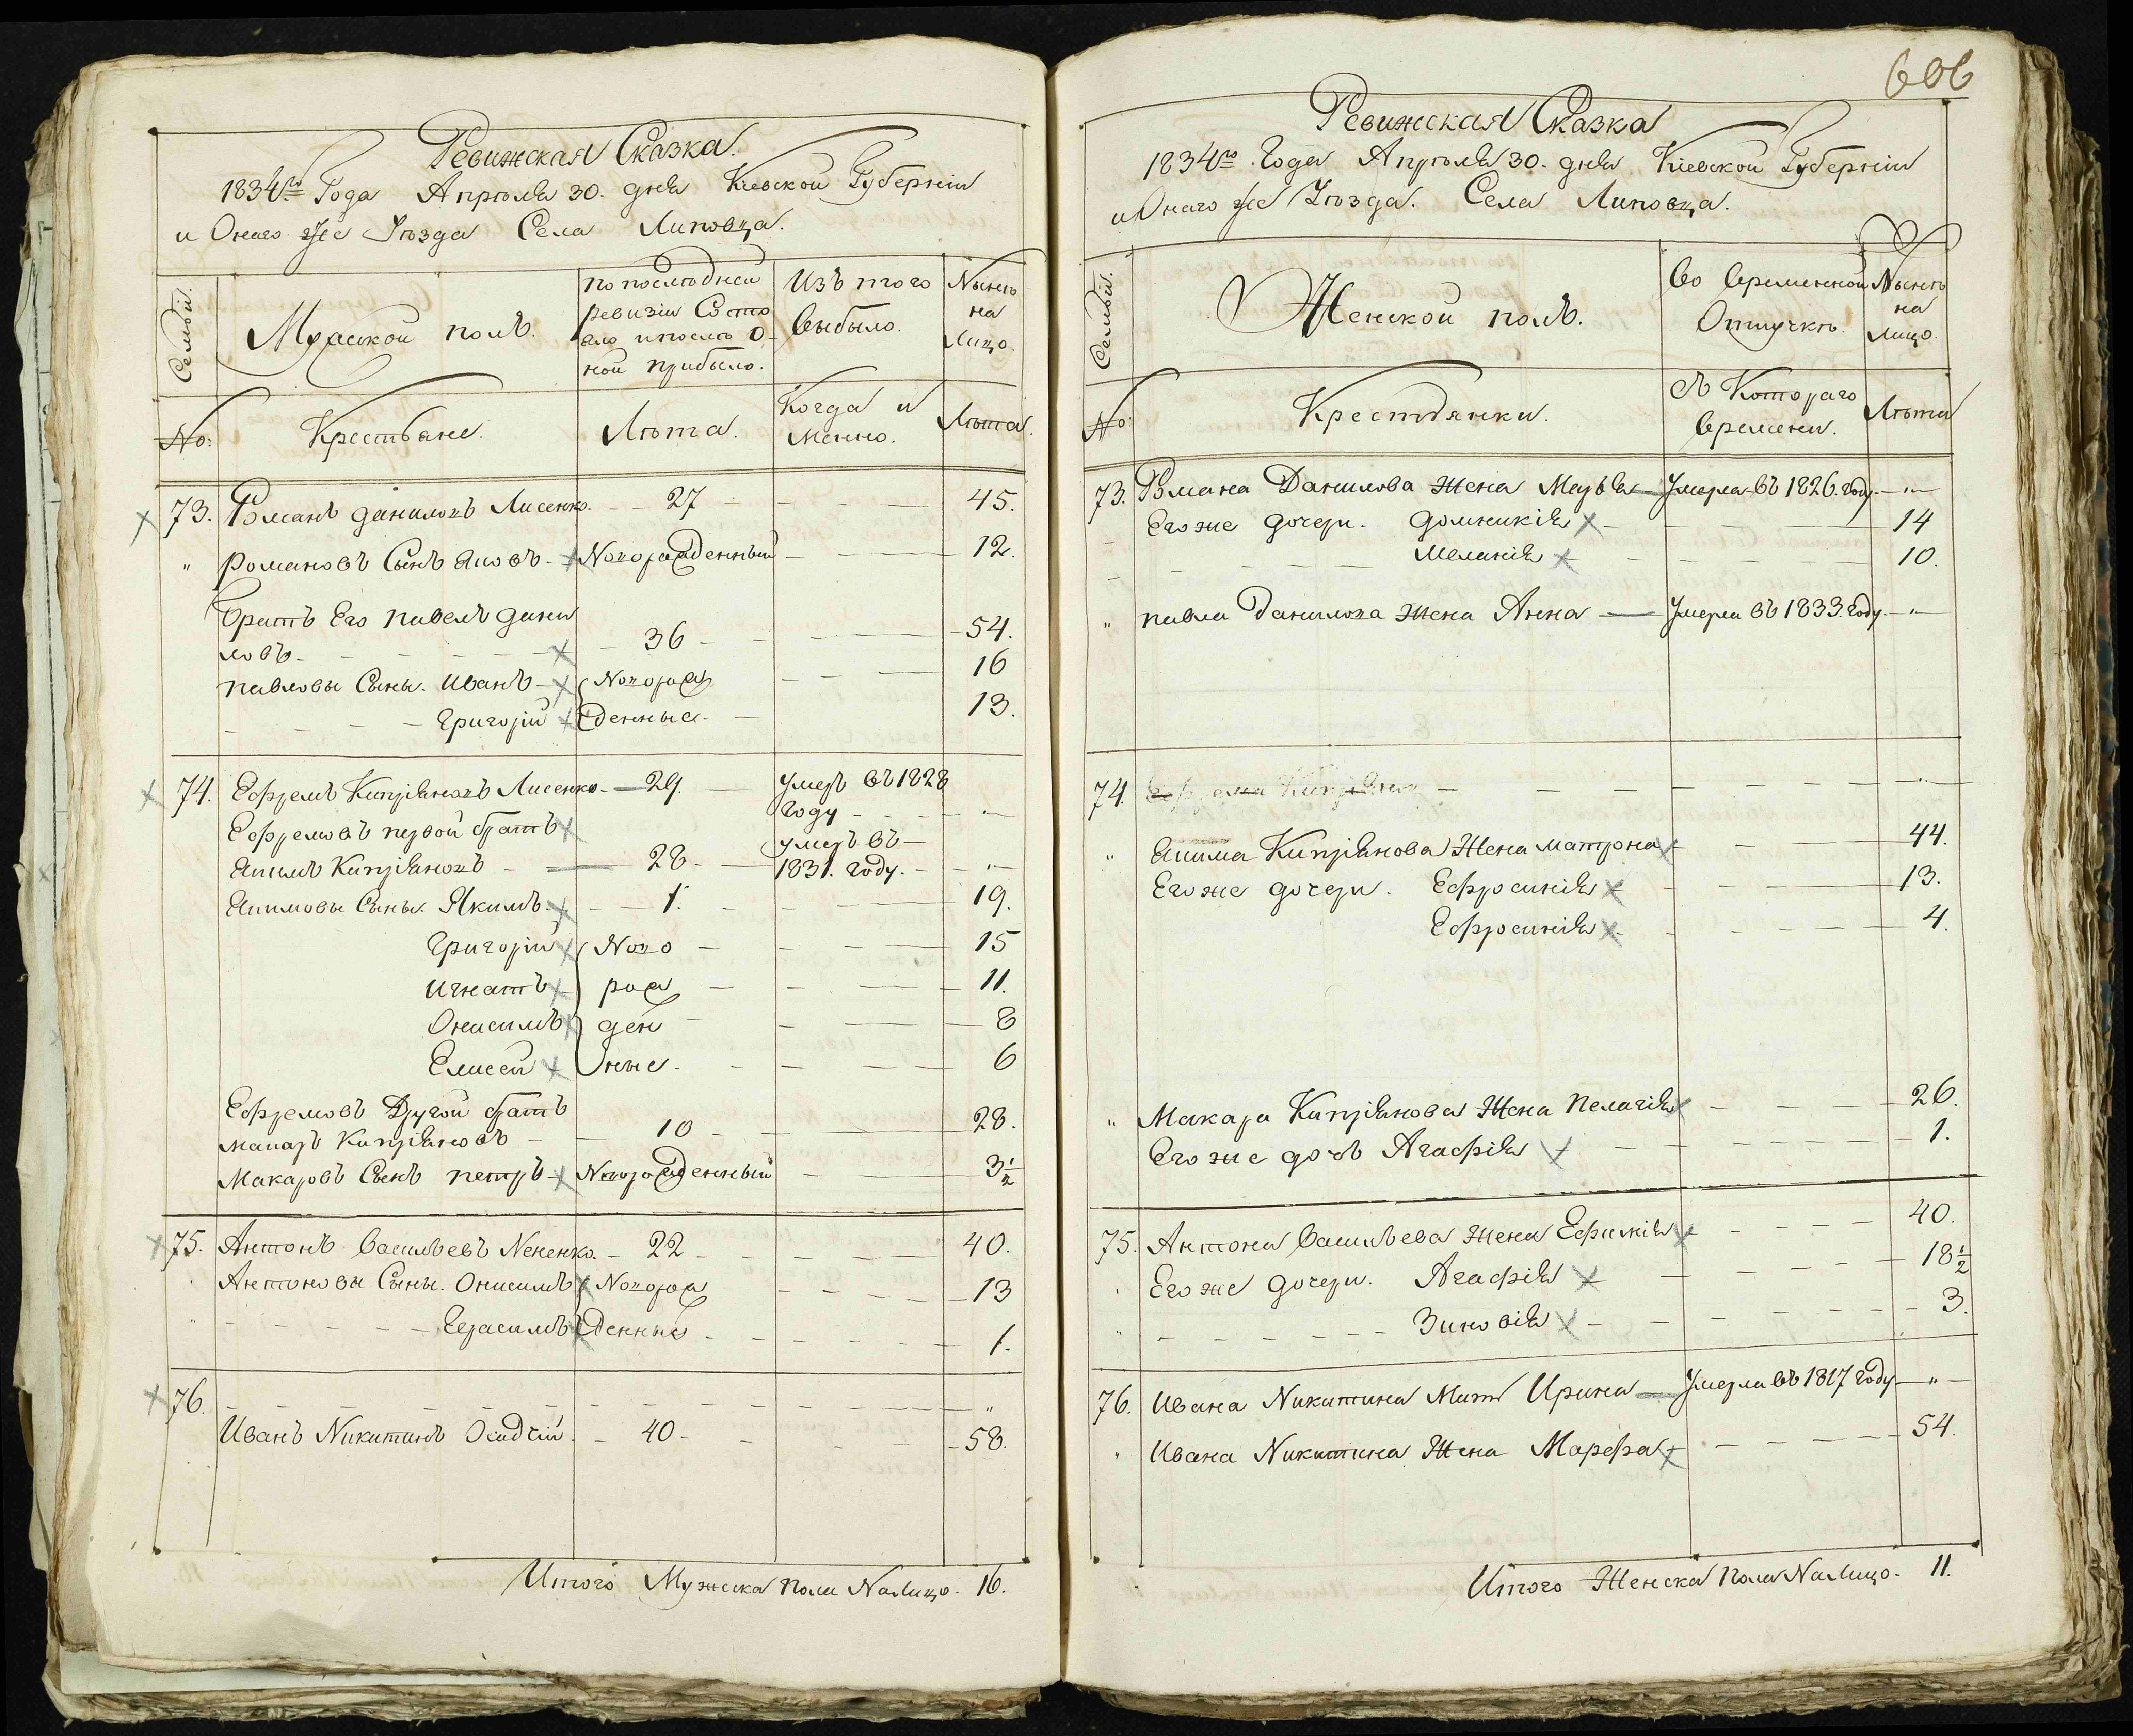 Ревижская Сказка.
1834го Года Апрѣля 30. дня Кіевской Губерніи
и Онаго же Уѣзда Села Липовца.
Семьи.
Мужской полъ.
по послѣдней
ревизіи Состо
яло и послѣ о-
ной прибыло.
Изъ того
выбыло.
Нынѣ
на
Лицо.
No:
Крестьяне.
Лѣта.
Когда и
Менно.
Лѣта.
73. Романъ даниловъ Лисенко. 27 45.
" Романовъ Сынъ Яковъ Новорожденный 12.
братъ Его павелъ дани
ловъ 36 54.
павловы Сыны. Иванъ Поворож 16
Григорій денные. 13.
74. Ефремъ Кипріяновъ Лисенко 29. Умеръ въ 1828
Году "
Ефремовъ первой братъ
Якимъ Кипріяновъ 28 умеръ въ
1831. году. "
Якимовы Сыны. Якимъ 1. 19.
Григорій Ново 15
Игнатъ рож 11.
Онисимъ ден 8
Елисей ные. 6
Ефремовъ Другой братъ
макаръ Кипріяновъ 10 28.
Макаровъ Сынъ петръ Новорожденный 3½
75. Антонъ Васильевъ Нененко. 22 40.
Антоновы Сыны. Онисимъ Новорож 13
" Герасимъ денные 1.
76. "
Иванъ Никитинъ Осадчій. 40 58.
Итого Мужска пола На Лицо. 16.
606
Ревижская Сказка
1834го Года Апрѣля 30. дня Кіевской Губерніи
и Онаго же Уѣзда. Села Липовца.
Семьи.
Женской полъ.
Во временной
Отлучкѣ.
Нынѣ
на
Лицо.
No:
Крестьянки.
Съ Котораго
времени.
Лѣта
73. Романа Данилова жена Марья Умерла въ 1826. году "
Его же дочери. Домникія 14
Меланія 10.
" павла Данилова жена Анна Умерла въ 1833. Году. "
74. Ефрема Кипріянов "
" Якима Кипріянова Жена матрона 44.
Его же дочери. Ефросинія 13.
Ефросинія 4.
" Макара Кипріянова Жена пелагія 26.
Его же дочь Агафія 1.
75. Антона Васильева жена Ефимія 40.
Его же дочери. Агафія 18½
" Зиновія 3.
76. Ивана Никитина Мать Ирина Умерла въ 1817 году "
" Ивана Никитина Жена Марфа 54.
Итого Женска пола На Лицо. 11.